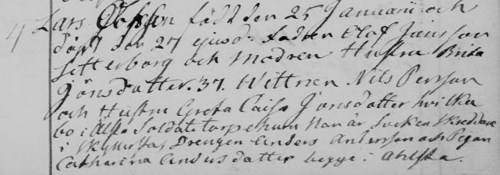 4 Lars Olsson född den 25 Januarii och
döpt den 27 ejusd. fadren Olof Jansson
Setterborg och modren Hustru Brita
Jönsdotter. 37. Wittnen Nils Person
och Hustru Greta Caisa Jonsdotter hvilka
bo i Soldatetorpet hvarest han är Socken Skreddare
i Drengen Anders Andersson och Pigan
Catharina Andersdotter begge i Ahlsta.